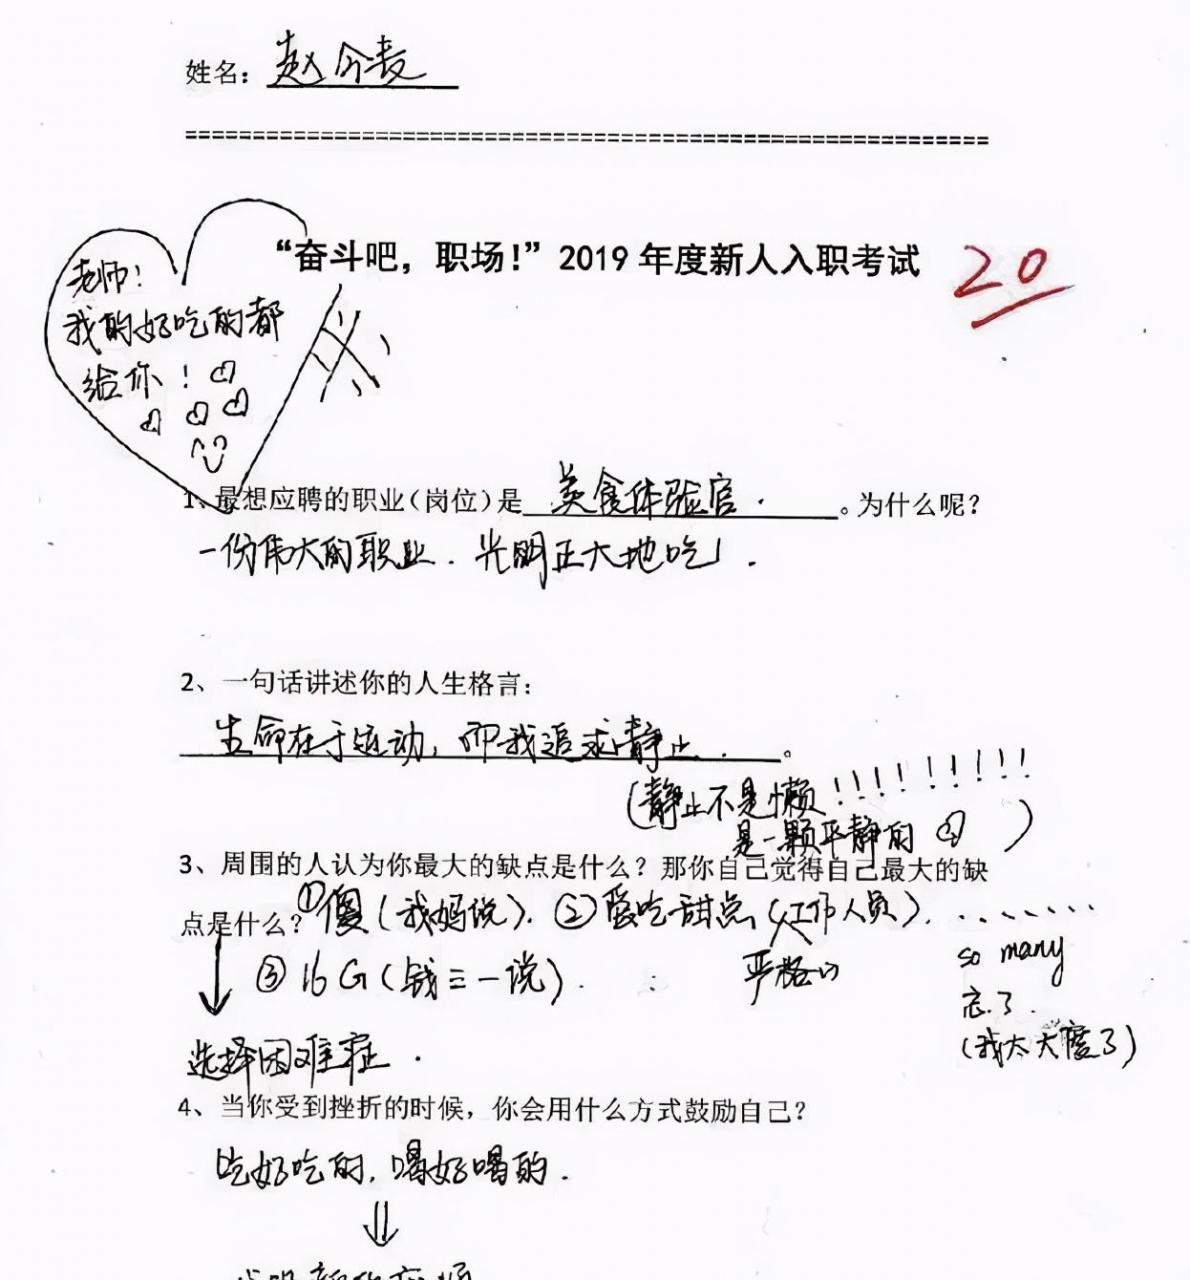 姓名：赵今麦
“奋斗吧，职场！”2019 年度新人入职考试
20
老师！
我的好吃的都
给你！
1、最想应聘的职业（岗位）是 美食体验官. 。为什么呢？
一份伟大的职业. 光明正大地吃！.
2、一句话讲述你的人生格言：
生命在于运动，而我追求静止. 。
（静止不是懒！！！！！！！！！
是一颗平静的 ）
3、周围的人认为你最大的缺点是什么？那你自己觉得自己最大的缺
点是什么？①傻（我妈说）. ②爱吃甜点（工作人员）. .......
严格的
so many
③16G（钱三一说）.
忘了.
（我太大度了）
选择困难症.
4、当你受到挫折的时候，你会用什么方式鼓励自己？
吃好吃的，喝好喝的.